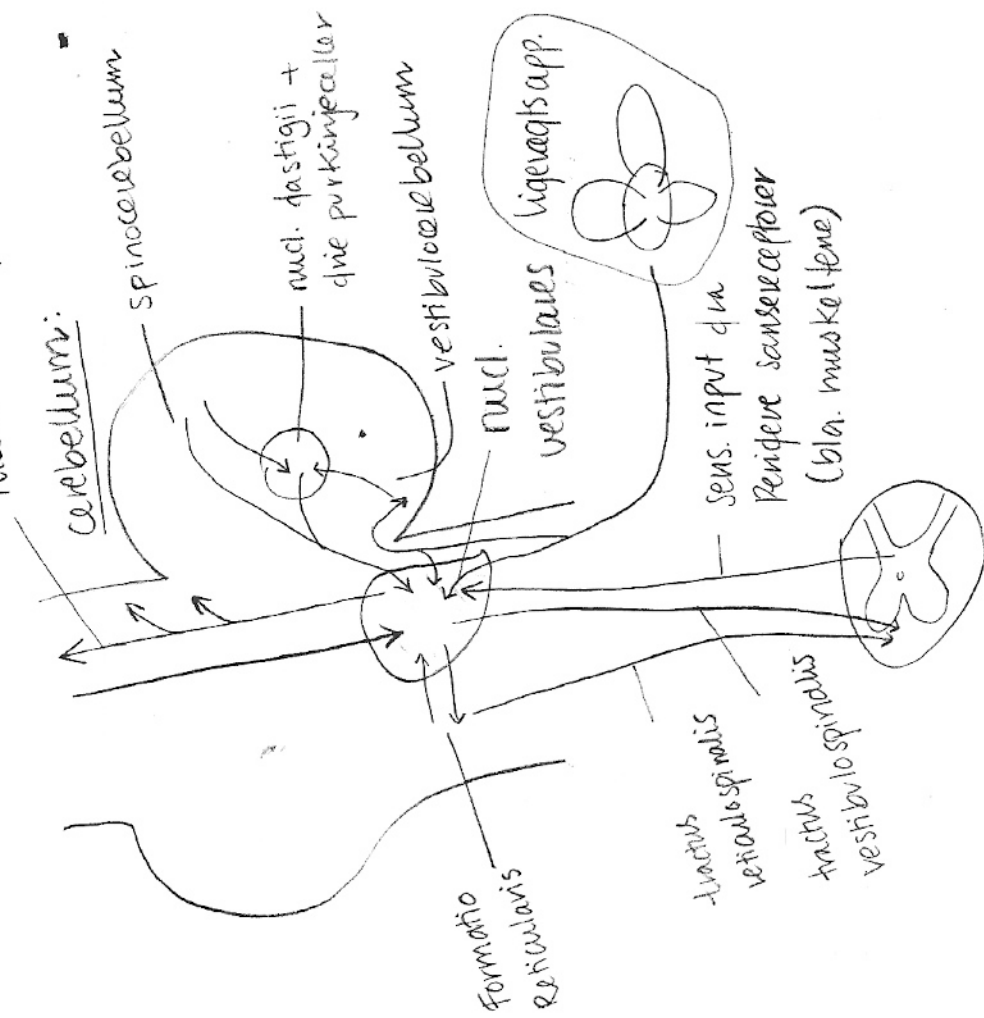 cerebellum:
spinocerebellum
nucl. fastigii +
øvre purkinjeceller
vestibulocerebellum
nucl.
vestibulares
ligevægtsapp.
sens. input fra
Perifere sansereceptorer
(bla. muskeltene)
Formatio
Reticularis
tractus
reticulospinalis
tractus
vestibulospinalis